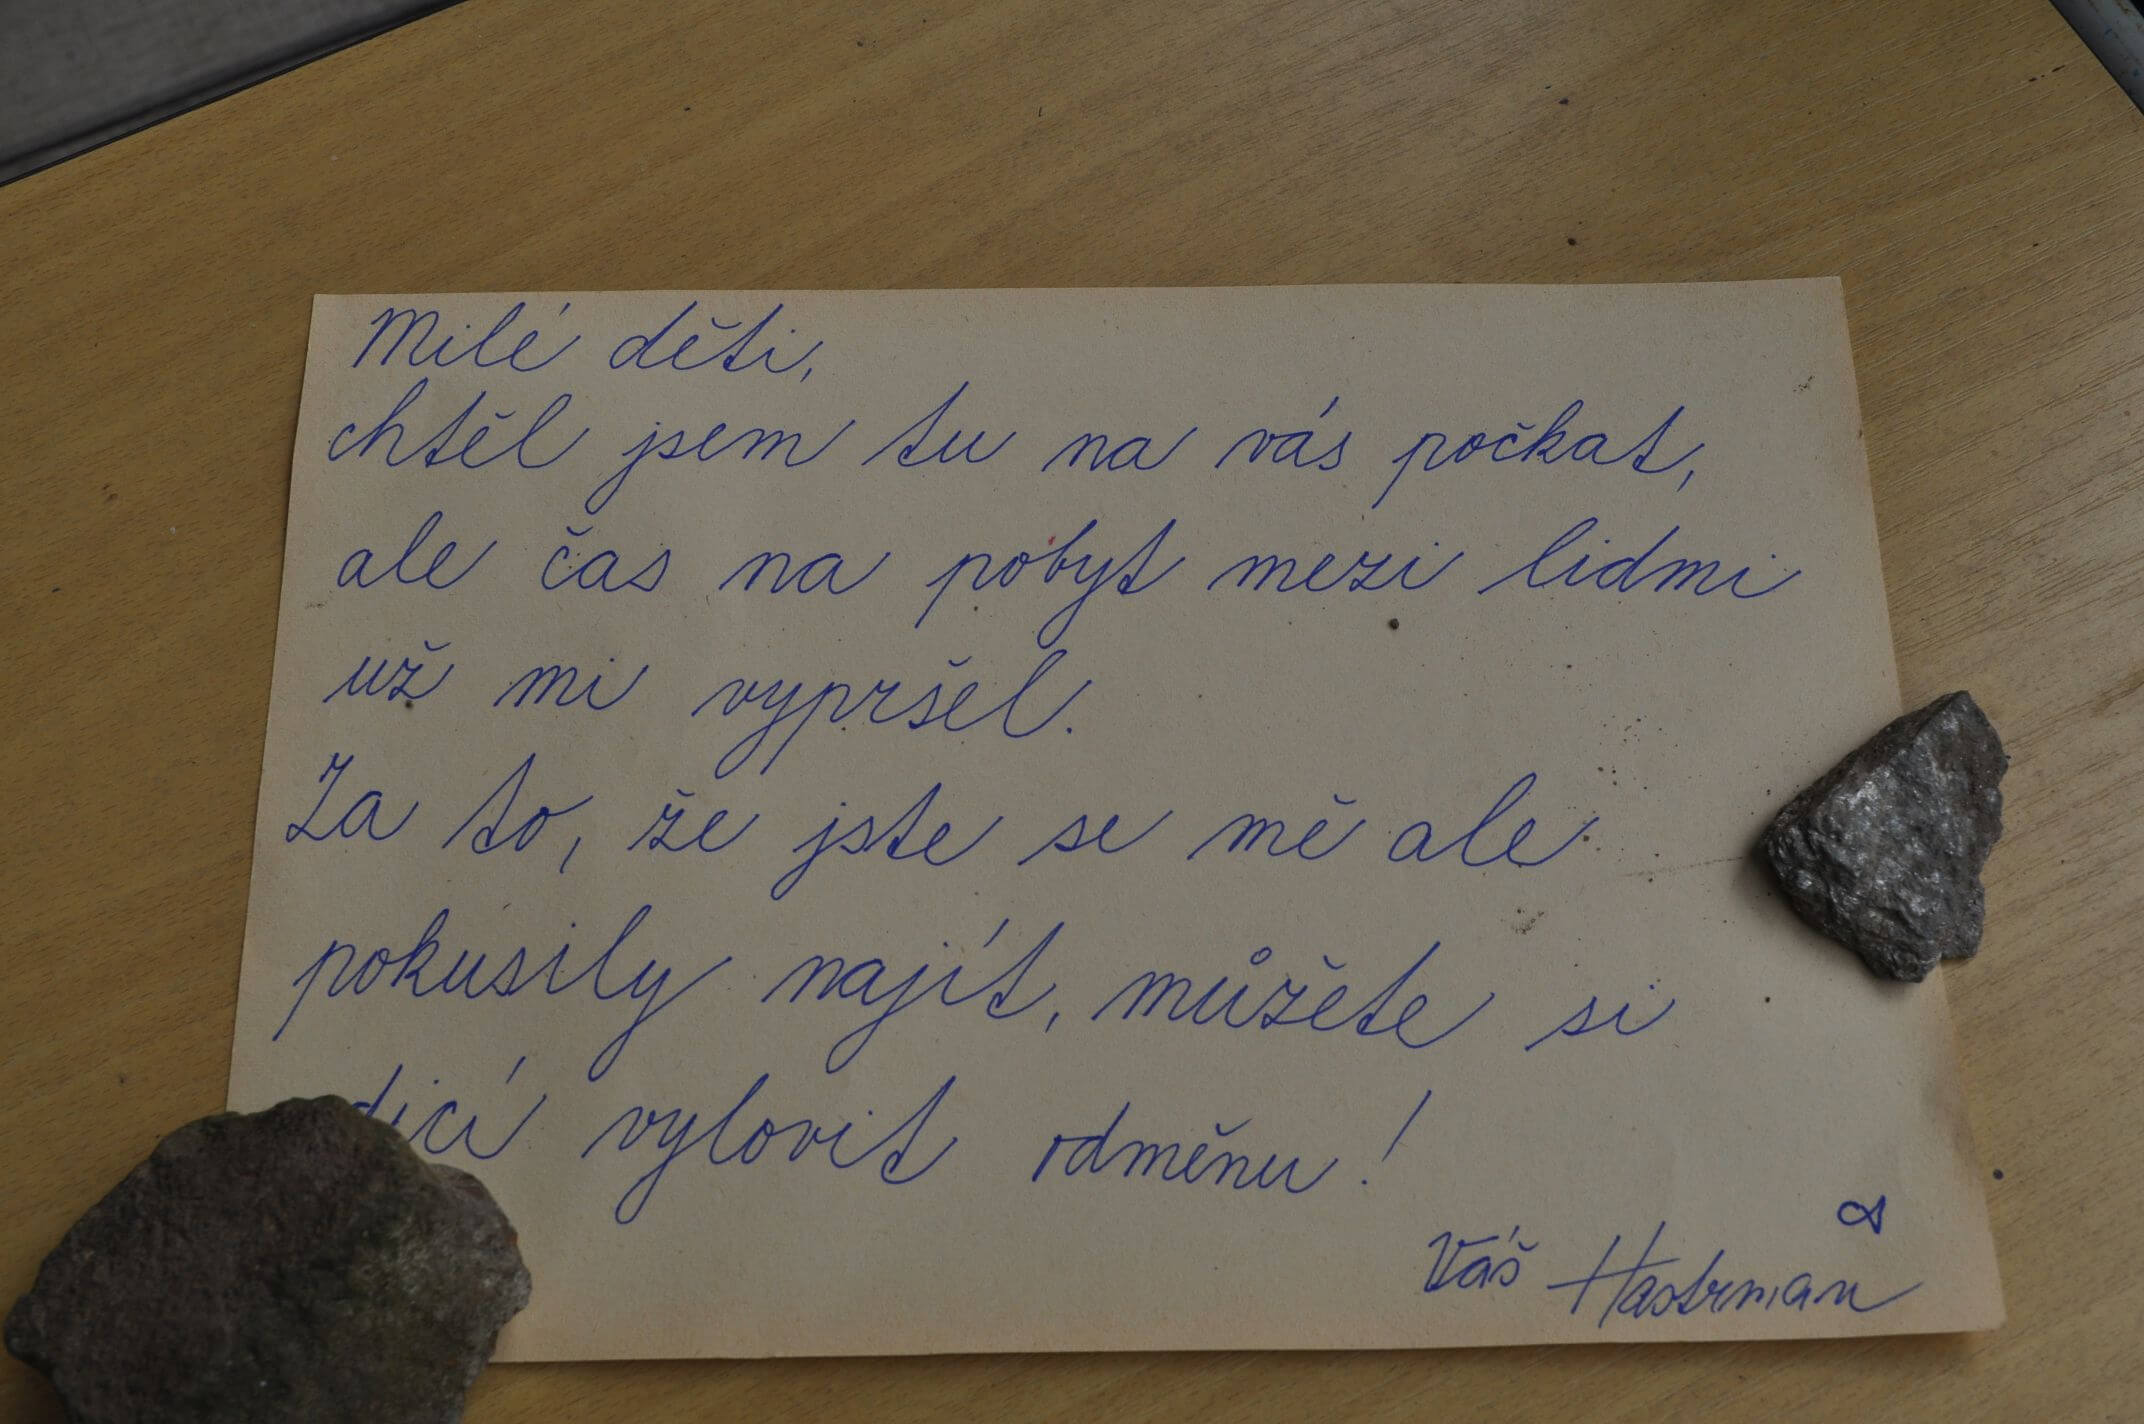 Milé děti,
chtěl jsem tu na vás počkat,
ale čas na pobyt mezi lidmi
už mi vypršel.
Za to, že jste se mě ale
pokusily najít, můžete si
vylovit odměnu!
Váš Hastrman